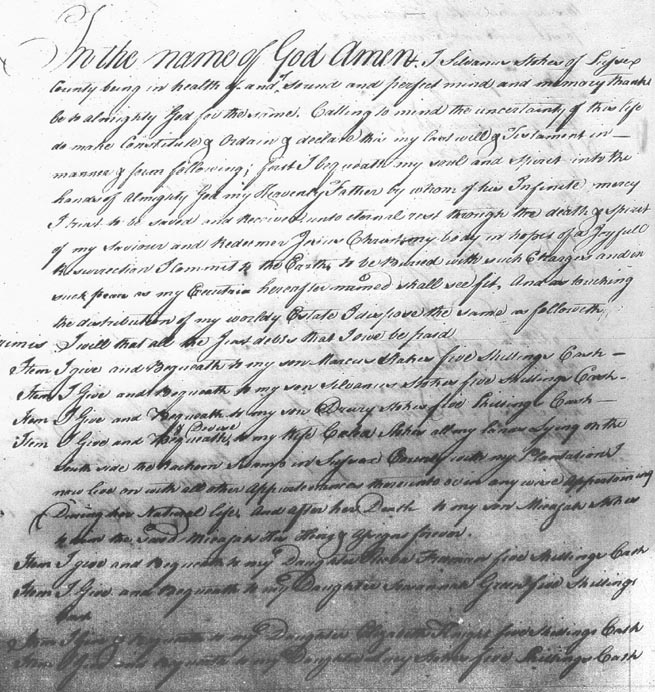 In the name of God Amen. I Silvanus Stokes of Sussex
County being in health of and of sound and perfect mind and memory thanks
be to almighty God for the same. Calling to mind the uncertainty of this life
do make Constitute & Ordain & declare this my last will & Testament in
manner & form following; first I bequeath my soul and spirit into the
hands of Almighty God my Heavenly Father by whom of his Infinite mercy
I trust to be saved and Received unto eternal rest through the death & spirit
of my Saviour and Redeemer Jesus Christ my body in hopes of a Joyfull
Resurrection I commit to the Earth to be Buried with such Charges and in
such place as my Executrix hereafter named shall see fit, And as touching
the distribution of my worldly Estate I dispose the same as followeth,
I will that all the Just debts that I owe be paid
Item I give and Bequeath to my son Marcus Stokes five Shillings Cash —
Item I Give and Bequeath to my son Silvanus Stokes five Shillings Cash -
Item I Give and Bequeath to my son Drury Stokes five Shillings Cash —
& Devise
Item I Give and Bequeath to my wife Celea Stokes all my Lands Lying on the
south side the Swamp in Sussex County with my Plantation I
now live on with all other Appurtenances thereunto or in any wise Appertaining
During her Natural life, And after her Death to my son Micajah Stokes
to him the said Micajah His Heirs & Assigns forever.
Item I give and Bequeath to my Daughter Freeman five Shillings Cash
Item I Give and Bequeath to my Daughter Susannah Green five Shillings
Cash
Item I Give & Bequeath to my Daughter Elizabeth five Shillings Cash
Item I Give and Bequeath to my Daughter Lucy Stokes five Shillings Cash